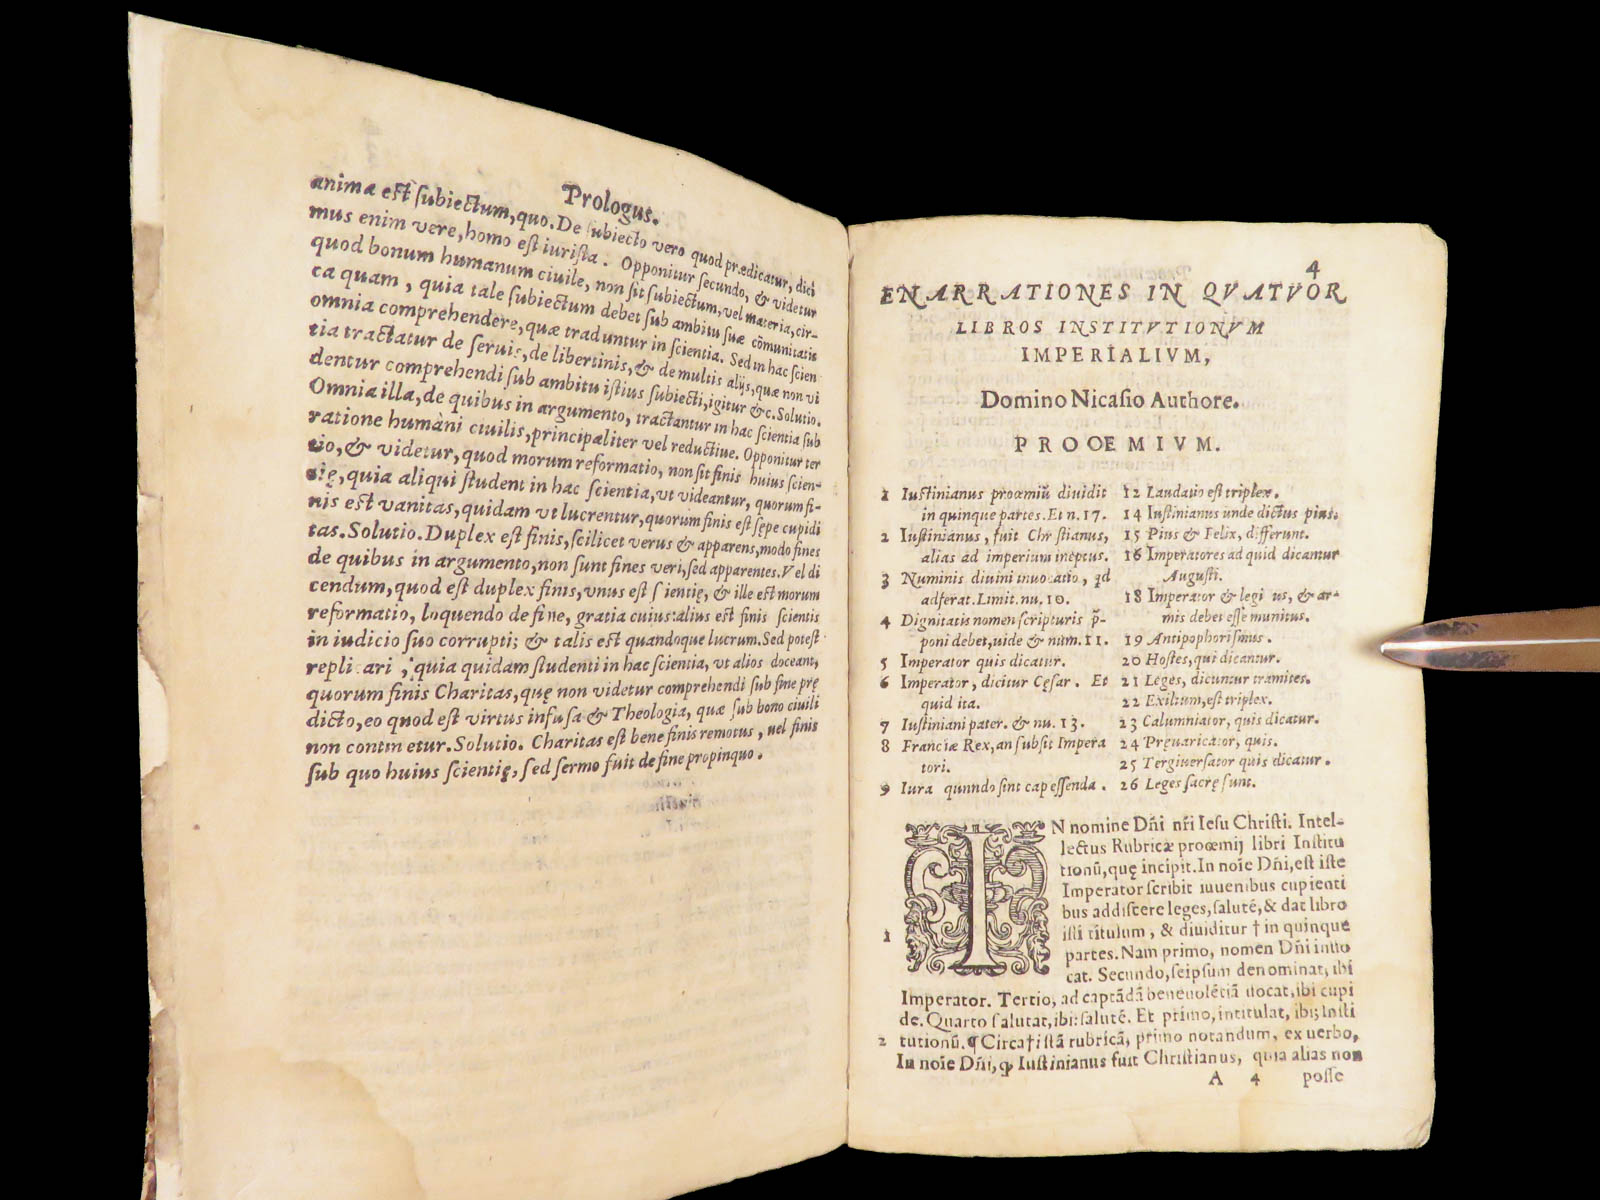 Prologus.
animæ est subiectum, quo. De subiecto vero quod prædicatur, dici
mus enim vere, homo est iurista. Opponitur secundo, & videtur
quod bonum humanum ciuile, non sit subiectum, vel materia, cir-
ca quam, quia tale subiectum debet sub ambitu suæ cõmunitatis
omnia comprehendere, quæ traduntur in scientia. Sed in hac scien
tia tractatur de seruis, de libertinis, & de multis alijs, quæ non vi
dentur comprehendi sub ambitu istius subiecti, igitur &c. Solutio.
Omnia illa, de quibus in argumento, tractantur in hac scientia sub
ratione humani ciuilis, principaliter vel reductiue. Opponitur ter
tio, & videtur, quod morum reformatio, non sit finis huius scien-
tię, quia aliqui student in hac scientia, vt videantur, quorum fi-
nis est vanitas, quidam vt lucrentur, quorum finis est sępe cupidi
tas. Solutio. Duplex est finis, scilicet verus & apparens, modo fines
de quibus in argumento, non sunt fines veri, sed apparentes. Vel di
cendum, quod est duplex finis, vnus est scientię, & ille est morum
reformatio, loquendo de fine, gratia cuius: alius est finis scientis
in iudicio suo corrupti; & talis est quandoque lucrum. Sed potest
replicari, quia quidam studenti in hac scientia, vt alios doceant,
quorum finis Charitas, quę non videtur comprehendi sub fine prę
dicto, eo quod est virtus infusa & Theologia, quæ sub bono ciuili
non continetur. Solutio. Charitas est bene finis remotus, vel finis
sub quo huius scientię, sed sermo fuit de fine propinquo.
4
ENARRATIONES IN QVATVOR
LIBROS INSTITVTIONVM
IMPERIALIVM,
Domino Nicasio Authore.
PROOEMIVM.
1 Iustinianus proœmiũ diuidit
in quinque partes. Et n. 17.
2 Iustinianus, fuit Chr stianus,
alias ad imperium ineptus.
3 Numinis diuini inuocatio, qd
adferat. Limit. nu. 10.
4 Dignitatis nomen scripturis p̃-
poni debet, uide & num. 11.
5 Imperator quis dicatur.
6 Imperator, dicitur Cęsar. Et
quid ita.
7 Iustiniani pater. & nu. 13.
8 Franciæ Rex, an subsit Impera
tori.
9 Iura quundo sint capessenda.
12 Laudatio est triplex.
14 Iustinianus unde dictus pius.
15 Pius & Felix, differunt.
16 Imperatores ad quid dicantur
Augusti.
18 Imperator & legi us, & ar-
mis debet esse munitus.
19 Antipophorismus.
20 Hostes, qui dicantur.
21 Leges, dicuntur tramites.
22 Exilium, est triplex.
23 Calumniator, quis dicatur.
24 Pręuaricator, quis.
25 Tergiuersator quis dicatur.
26 Leges sacrę sunt.
IN nomine Dñi nr̃i Iesu Christi. Intel-
lectus Rubricæ proœmij libri Institu
tionũ, quę incipit. In noĩe Dñi, est iste
Imperator scribit iuuenibus cupienti
bus addiscere leges, salutẽ, & dat libro
1 isti titulum, & diuiditur † in quinque
partes. Nam primo, nomen Dñi inuo
cat. Secundo, seipsum denominat, ibi
Imperator. Tertio, ad captãdã beneuolẽtiã uocat, ibi cupi
de. Quarto salutat, ibi: salutẽ. Et primo, intitulat, ibi; Insti
2 tutionũ. ¶ Circa † istã rubricã, primo notandum, ex uerbo,
In noĩe Dñi, ꝙ Iustinianus fuit Christianus, quia alias non
A 4 posse